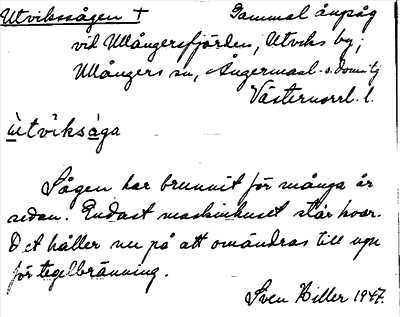 Utvikssågen † Gammal ångsåg
vid Ullångersfjärden, Utviks by,
Ullångers sn, Ångermanl. s. domstj
Västernorrl. l.
ùtvìksa̱ga
Sågen har brunnit för många år
sedan. Endast maskinhuset står kvar.
Det håller nu på att omändras till ugn
för tegelbränning.
Sven Hiller 1947.